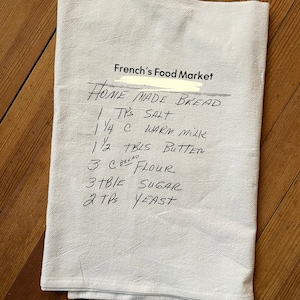 French's Food Market
HOME MADE BREAD
1 TPS SALT
1 1/4 C WARM MILK
1 1/2 TBLS BUTTER
3 C BREAD FLOUR
3 TBLE SUGAR
2 TPS YEAST